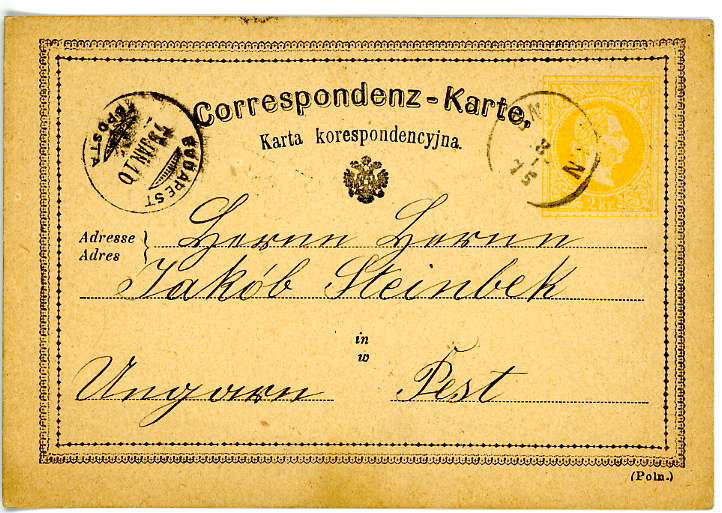 Correspondenz-Karte.
Karta korespondencyjna.
BUDAPEST
75 JAN 10
8
1
75
2 kr.
Adresse
Adres
Herrn Herrn
Jakób Steinbek
in
w
Ungarn Pest
(Poln.)